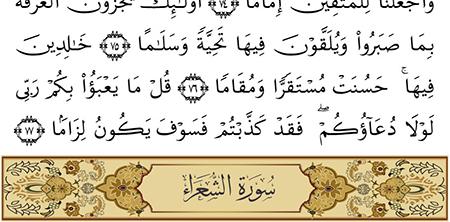 وَٱجْعَلْنَا لِلْمُتَّقِينَ إِمَامًا ﴿٧٤﴾ أُو۟لَـٰٓئِكَ يُجْزَوْنَ ٱلْغُرْفَةَ
بِمَا صَبَرُوا۟ وَيُلَقَّوْنَ فِيهَا تَحِيَّةً وَسَلَـٰمًا ﴿٧٥﴾ خَـٰلِدِينَ
فِيهَا ۚ حَسُنَتْ مُسْتَقَرًّا وَمُقَامًا ﴿٧٦﴾ قُلْ مَا يَعْبَؤُا۟ بِكُمْ رَبِّى
لَوْلَا دُعَآؤُكُمْ ۖ فَقَدْ كَذَّبْتُمْ فَسَوْفَ يَكُونُ لِزَامًۢا ﴿٧٧﴾
سُورَةُ الشُّعَرَاءِ